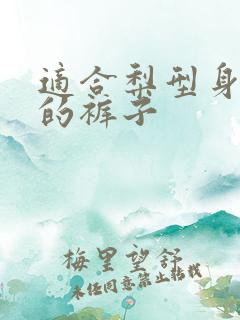 適合梨型身
的裤子
梅里望舒
未经同意禁止转载